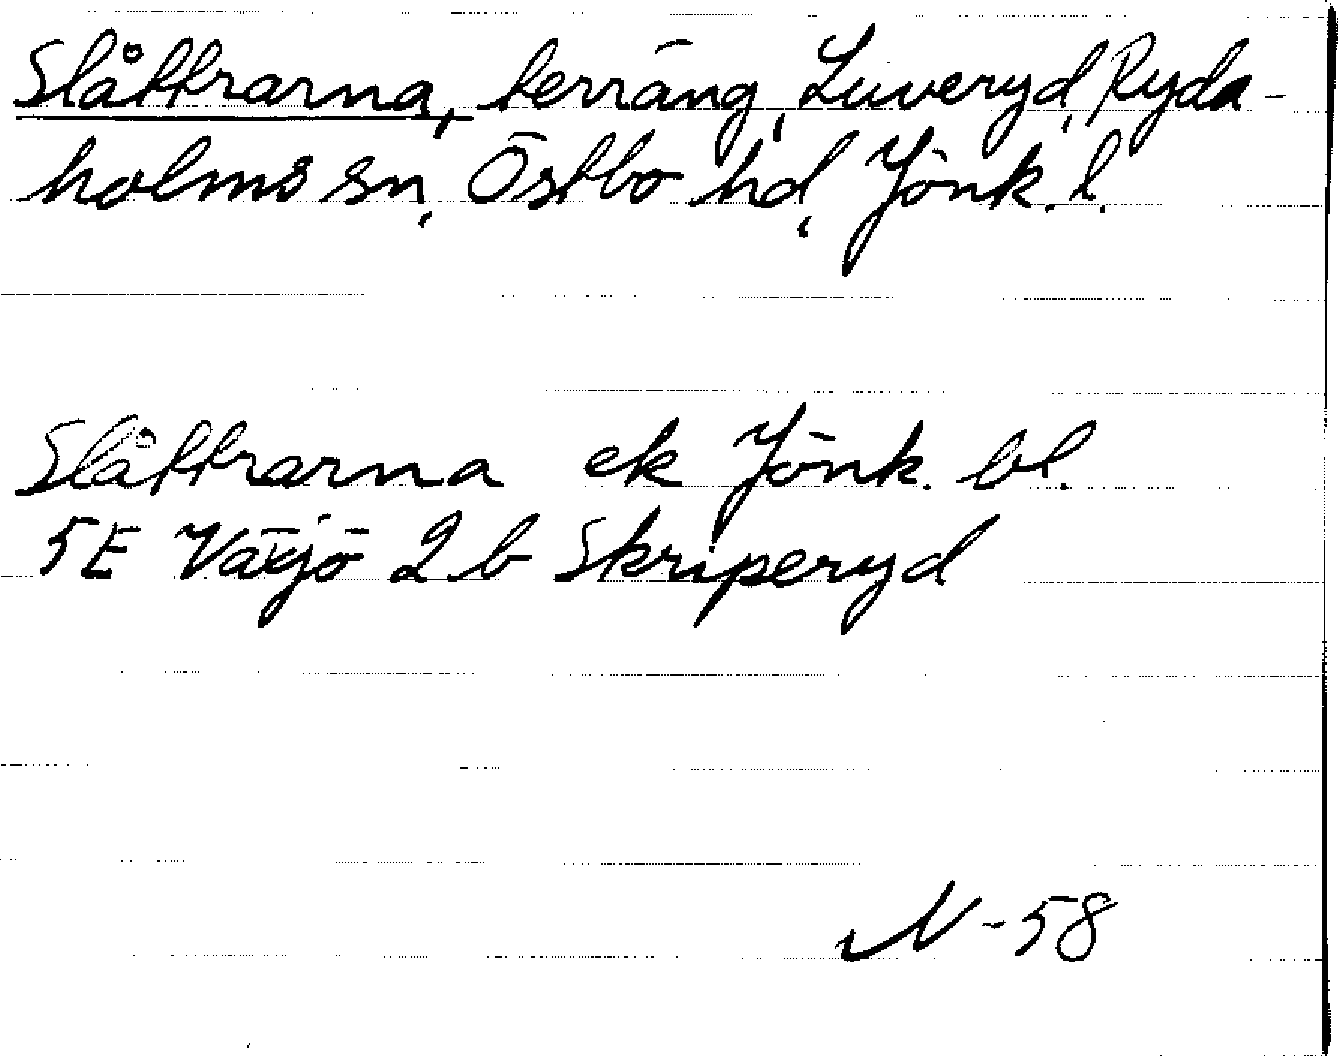 Slåttrarna, terräng, Luveryd, Ryda-
holms sn, Östbo hd, Jönk. l.
Slåttrarna ek Jönk. bl.
5E Växjö 2 b Skriperyd
N-58